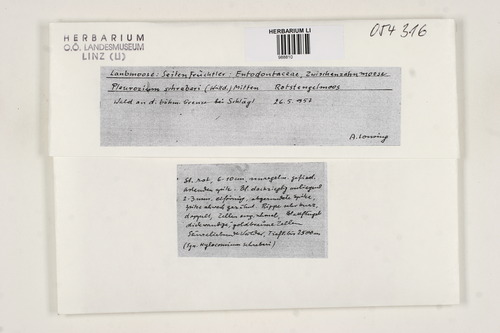 HERBARIUM
O.Ö. LANDESMUSEUM
LINZ (LI)
HERBARIUM LI
054 316
Laubmoose: Seitenfrüchtler: Entodontaceae, Zwischenzahnmoose
Pleurozium schreberi (Willd.) Mitten Rotstengelmoos
Wald an d. böhm. Grenze bei Schlägl 26.5.1953
St. rot, 6-10 cm, unregelm. gefied.
Astenden spitz. Bl. dachzieglig anliegend
2-3 mm, eiförmig, abgerundete Spitze,
Spitze schwach gezähnt. Rippe sehr kurz,
doppelt, Zellen eng, Blattflügel
dickwandige, goldbraune Zellen
Wälder, Tiefl. bis 2500 m
(Syn. Hylocomium schreberi)